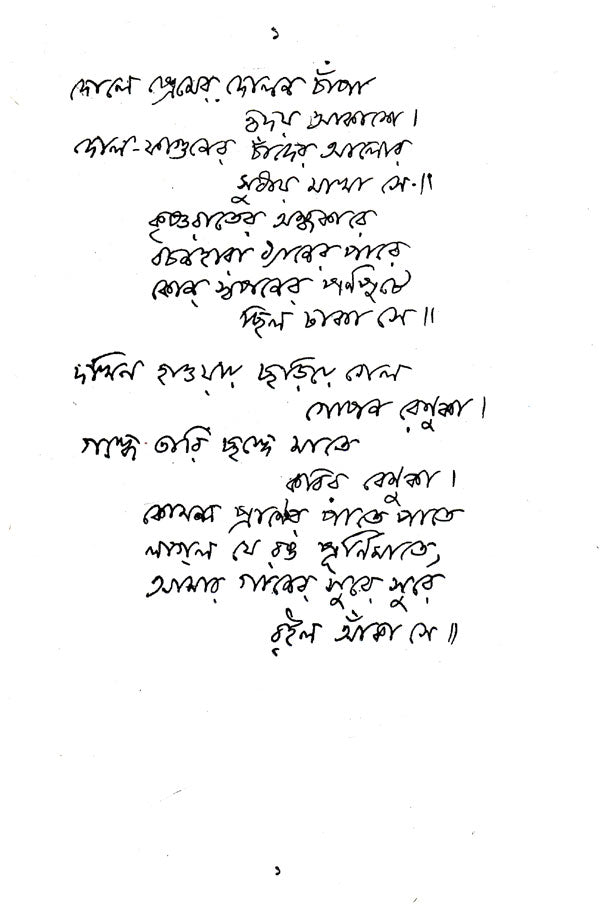 ১
দোলে প্রেমের দোলন চাঁপা
হৃদয় আকাশে।
দোল-ফাগুনের চাঁদের আলোর
সুধায় মাখা সে॥
কৃষ্ণরাতের অন্ধকারে
বচনহারা ধ্যানের পারে
কোন্ স্বপনের পর্ণপুটে
ছিল ঢাকা সে॥
দখিন হাওয়ায় ছড়িয়ে গেল
গোপন রেণুকা।
গন্ধে তারি ছন্দে মাতে
কবির বেণুকা।
কোমল প্রাণের পাতে পাতে
লাগ্‌ল যে রঙ পূর্ণিমাতে,
আমার গানের সুরে সুরে
রইল আঁকা সে॥
১